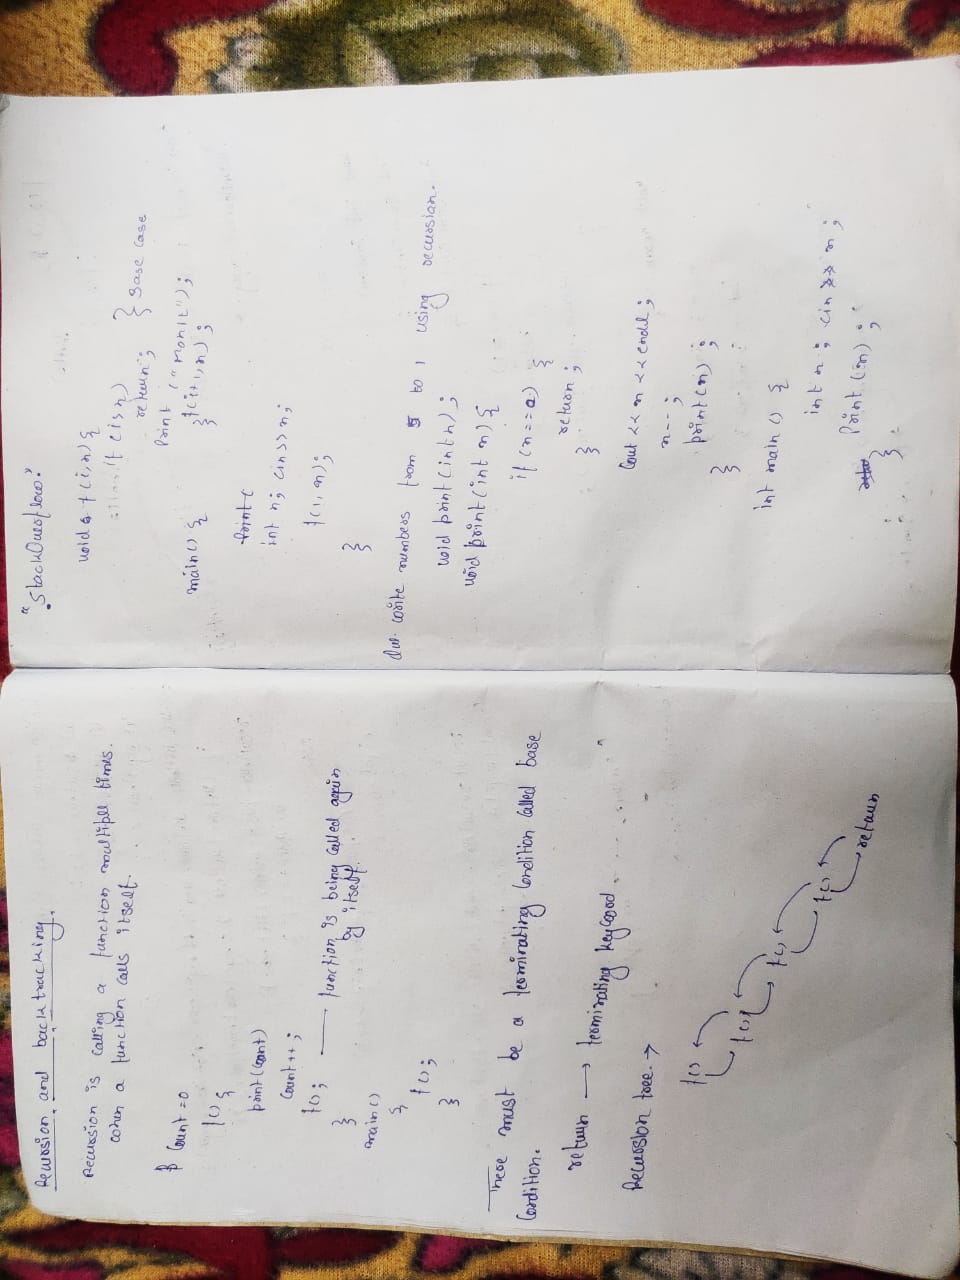 Recursion and backtracking.
Recursion is calling a function multiple times.
when a function calls itself.
count = 0
f() {
print(count)
count++;
f(); → function is being called again
by itself.
}
main()
{
f();
}
There must be a terminating condition called base
condition.
return → terminating keyword
Recursion tree. →
f()
f()
f()
f()
return
"Stack Overflow."
void f(i,n) {
if (i>n)
return; } Base Case
print ("MONIL");
f(i+1,n);
}
main() {
print(
int n; cin>>n;
f(1,n);
}
Que. write numbers from 5 to 1 using recursion.
void print(int n);
void print(int n) {
if (n==0) {
return;
}
cout << n << endl;
n--;
print(n);
}
int main() {
int n; cin >> n;
print(n);
}